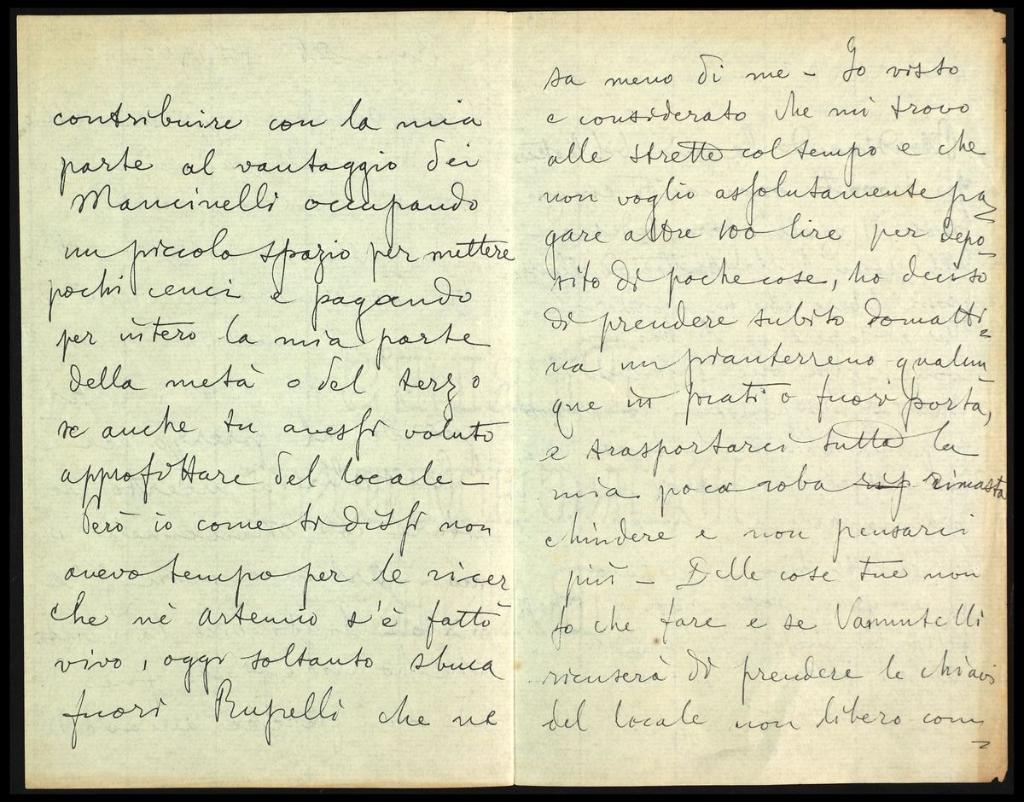 contribuire con la mia
parte al vantaggio dei
Mancinelli occupando
un piccolo spazio per mettere
pochi cenci e pagando
per intero la mia parte
della metà o del terzo
se anche tu avessi voluto
approfittare del locale –
Però io come ti dissi non
avevo tempo per le ricer
che nè Artemio s'è fatto
vivo, oggi soltanto sbuca
fuori Rupelli che ne
sa meno di me – Io visto
e considerato che mi trovo
alle strette col tempo e che
non voglio assolutamente pa=
gare altre 100 lire per depo=
sito di poche cose, ho deciso
di prendere subito domatti=
na un pianterreno qualun
que in prati o fuori porta,
e trasportarci tutta la
mia poca roba rimasta
chiudere e non pensarci
più – Delle cose tue non
so che fare e se Vannutelli
ricuserà di prendere le chiavi
del locale non libero com=